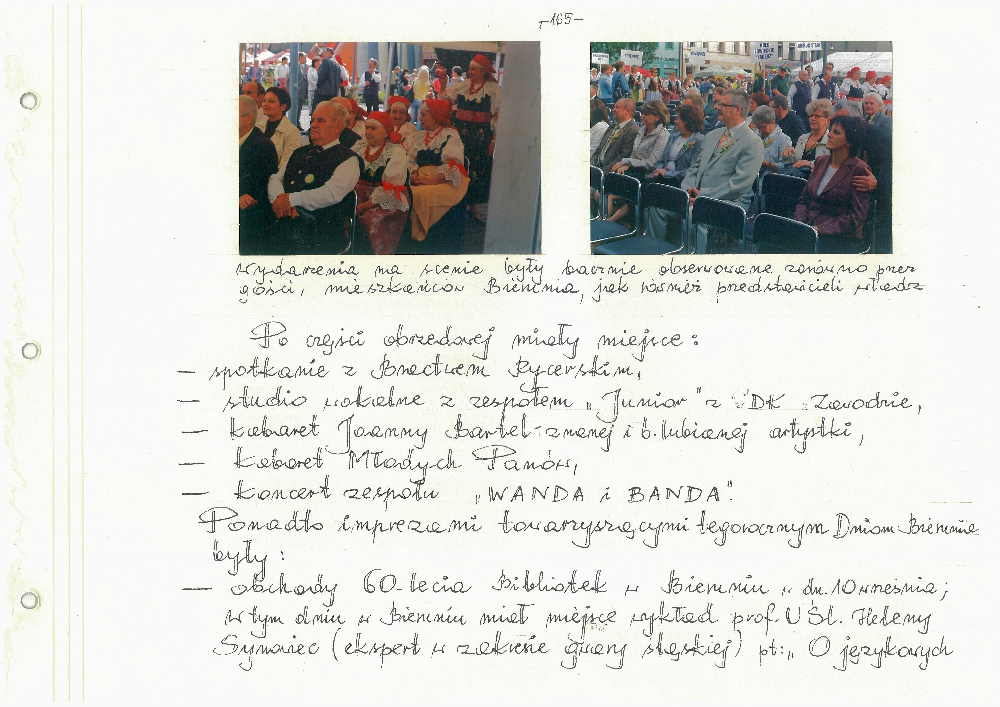 -165-
Wydarzenia na scenie były bacznie obserwowane zarówno przez
gości, mieszkańców Bierunia, jak również przedstawicieli władz
Po części obrzędowej miały miejsce:
— spotkanie z Bractwem Rycerskim,
— studio wokalne z zespołem "Junior" z DK "Zawodzie,
— kabaret Joanny Bartel - znanej i b. lubianej artystki,
— Kabaret Młodych Panów,
— koncert zespołu "WANDA i BANDA".
Ponadto imprezami towarzyszącymi tegorocznym Dniom Bierunia
były:
— obchody 60-lecia Bibliotek w Bieruniu w dn. 10 września;
w tym dniu w Bieruniu miał miejsce wykład prof. UŚl. Heleny
Synowiec (ekspert w zakresie gwary śląskiej) pt: "O językowych